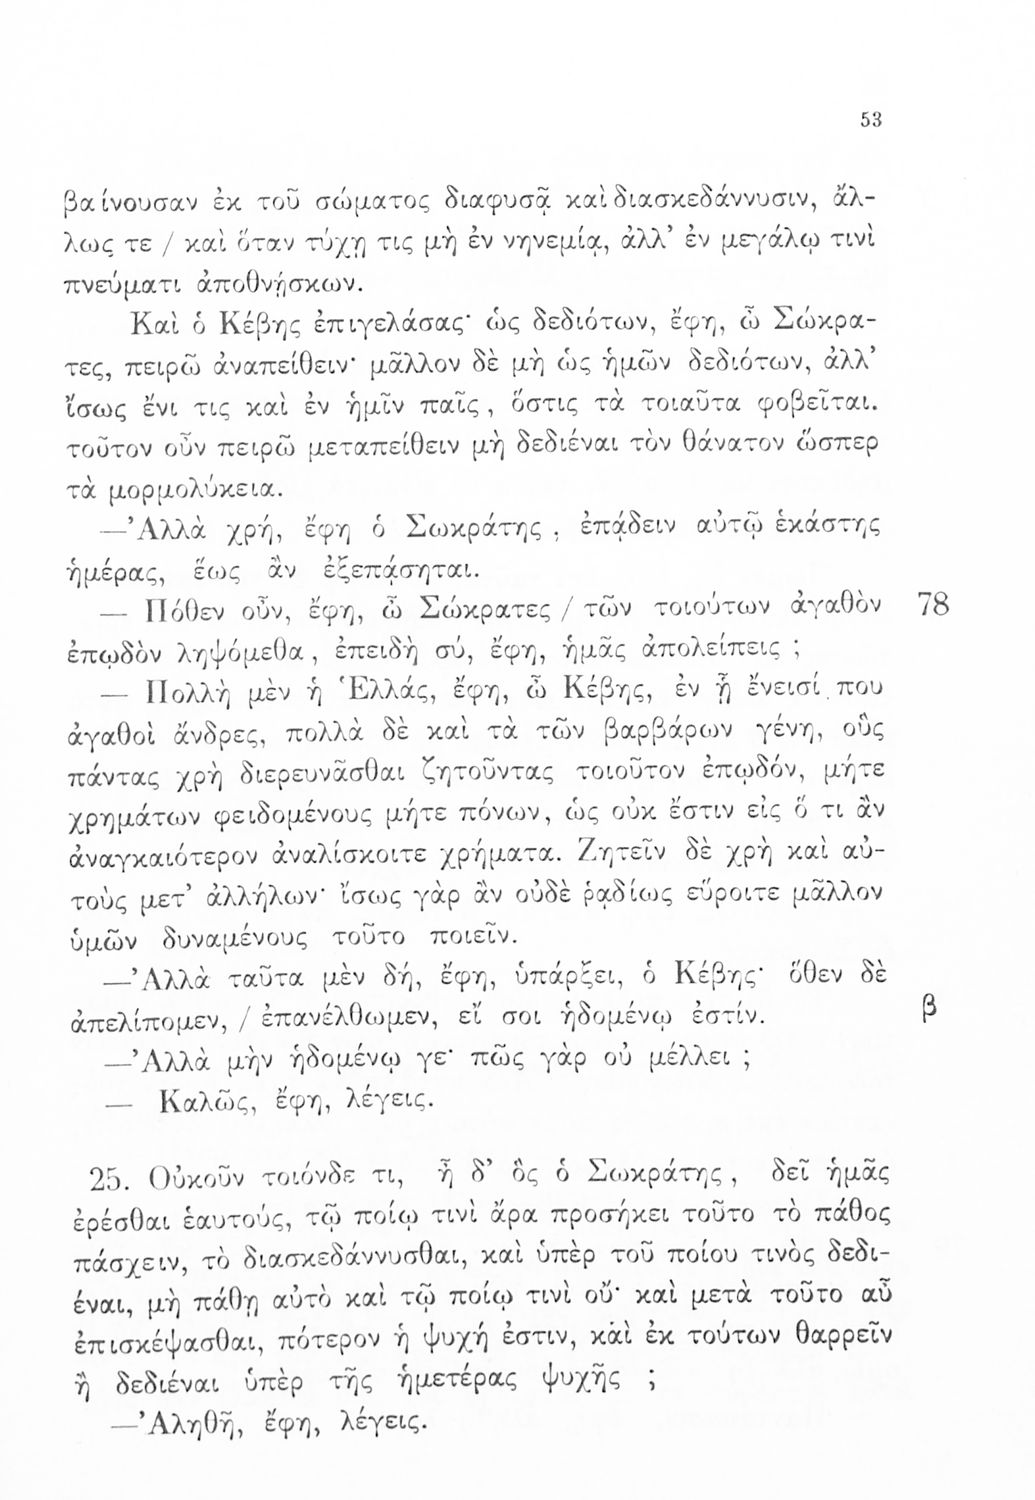 53
βαίνουσαν ἐκ τοῦ σώματος διαφυσᾷ καὶ διασκεδάννυσιν, ἄλ-
λως τε / καὶ ὅταν τύχῃ τις μὴ ἐν νηνεμίᾳ, ἀλλ’ ἐν μεγάλῳ τινὶ
πνεύματι ἀποθνῄσκων.
Καὶ ὁ Κέβης ἐπιγελάσας· ὡς δεδιότων, ἔφη, ὦ Σώκρα-
τες, πειρῶ ἀναπείθειν· μᾶλλον δὲ μὴ ὡς ἡμῶν δεδιότων, ἀλλ’
ἴσως ἔνι τις καὶ ἐν ἡμῖν παῖς, ὅστις τὰ τοιαῦτα φοβεῖται.
τοῦτον οὖν πειρῶ μεταπείθειν μὴ δεδιέναι τὸν θάνατον ὥσπερ
τὰ μορμολύκεια.
—’Αλλὰ χρή, ἔφη ὁ Σωκράτης, ἐπᾴδειν αὐτῷ ἑκάστης
ἡμέρας, ἕως ἂν ἐξεπᾴσηται.
— Πόθεν οὖν, ἔφη, ὦ Σώκρατες / τῶν τοιούτων ἀγαθὸν 78
ἐπῳδὸν ληψόμεθα, ἐπειδὴ σύ, ἔφη, ἡμᾶς ἀπολείπεις ;
— Πολλὴ μὲν ἡ Ἑλλάς, ἔφη, ὦ Κέβης, ἐν ᾗ ἔνεισί που
ἀγαθοὶ ἄνδρες, πολλὰ δὲ καὶ τὰ τῶν βαρβάρων γένη, οὓς
πάντας χρὴ διερευνᾶσθαι ζητοῦντας τοιοῦτον ἐπῳδόν, μήτε
χρημάτων φειδομένους μήτε πόνων, ὡς οὐκ ἔστιν εἰς ὅ τι ἂν
ἀναγκαιότερον ἀναλίσκοιτε χρήματα. Ζητεῖν δὲ χρὴ καὶ αὐ-
τοὺς μετ’ ἀλλήλων· ἴσως γὰρ ἂν οὐδὲ ῥᾳδίως εὕροιτε μᾶλλον
ὑμῶν δυναμένους τοῦτο ποιεῖν.
—’Αλλὰ ταῦτα μὲν δή, ἔφη, ὑπάρξει, ὁ Κέβης· ὅθεν δὲ
ἀπελίπομεν, / ἐπανέλθωμεν, εἴ σοι ἡδομένῳ ἐστίν. β
—’Αλλὰ μὴν ἡδομένῳ γε· πῶς γὰρ οὐ μέλλει ;
— Καλῶς, ἔφη, λέγεις.
25. Οὐκοῦν τοιόνδε τι, ἦ δ’ ὃς ὁ Σωκράτης, δεῖ ἡμᾶς
ἐρέσθαι ἑαυτούς, τῷ ποίῳ τινὶ ἄρα προσήκει τοῦτο τὸ πάθος
πάσχειν, τὸ διασκεδάννυσθαι, καὶ ὑπὲρ τοῦ ποίου τινὸς δεδι-
έναι, μὴ πάθῃ αὐτὸ καὶ τῷ ποίῳ τινὶ οὔ· καὶ μετὰ τοῦτο αὖ
ἐπισκέψασθαι, πότερον ἡ ψυχή ἐστιν, καὶ ἐκ τούτων θαρρεῖν
ἢ δεδιέναι ὑπὲρ τῆς ἡμετέρας ψυχῆς ;
—’Αληθῆ, ἔφη, λέγεις.